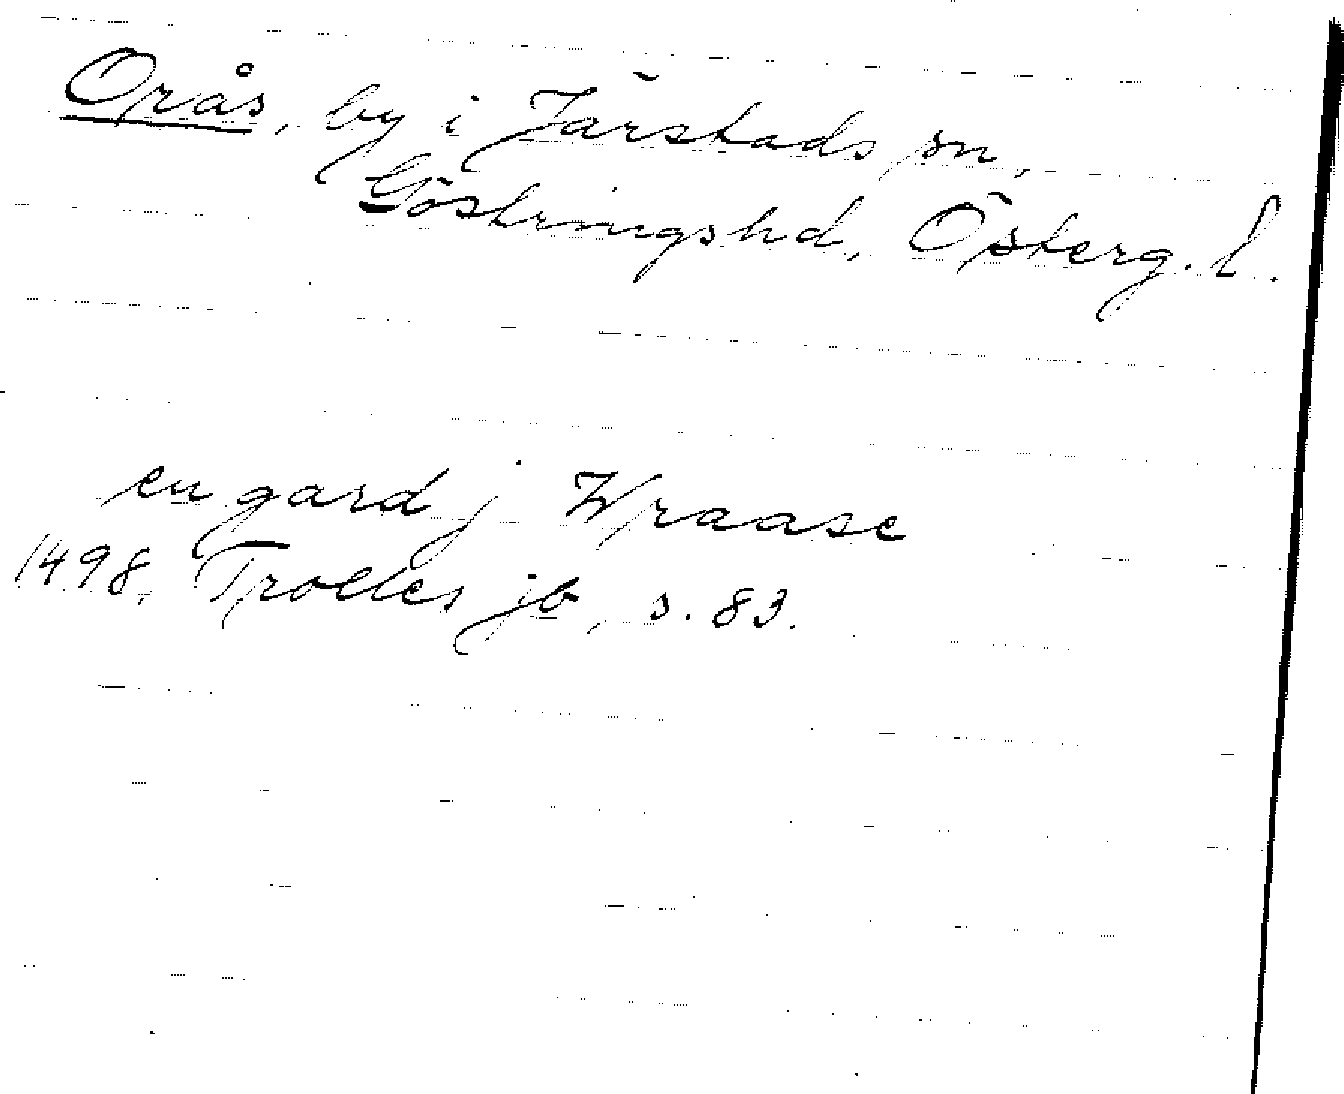 Orås, by i Järstads sn,
Göstringshd, Österg. l.
en gard j Wraase
1498. Trolles jb, s. 83.